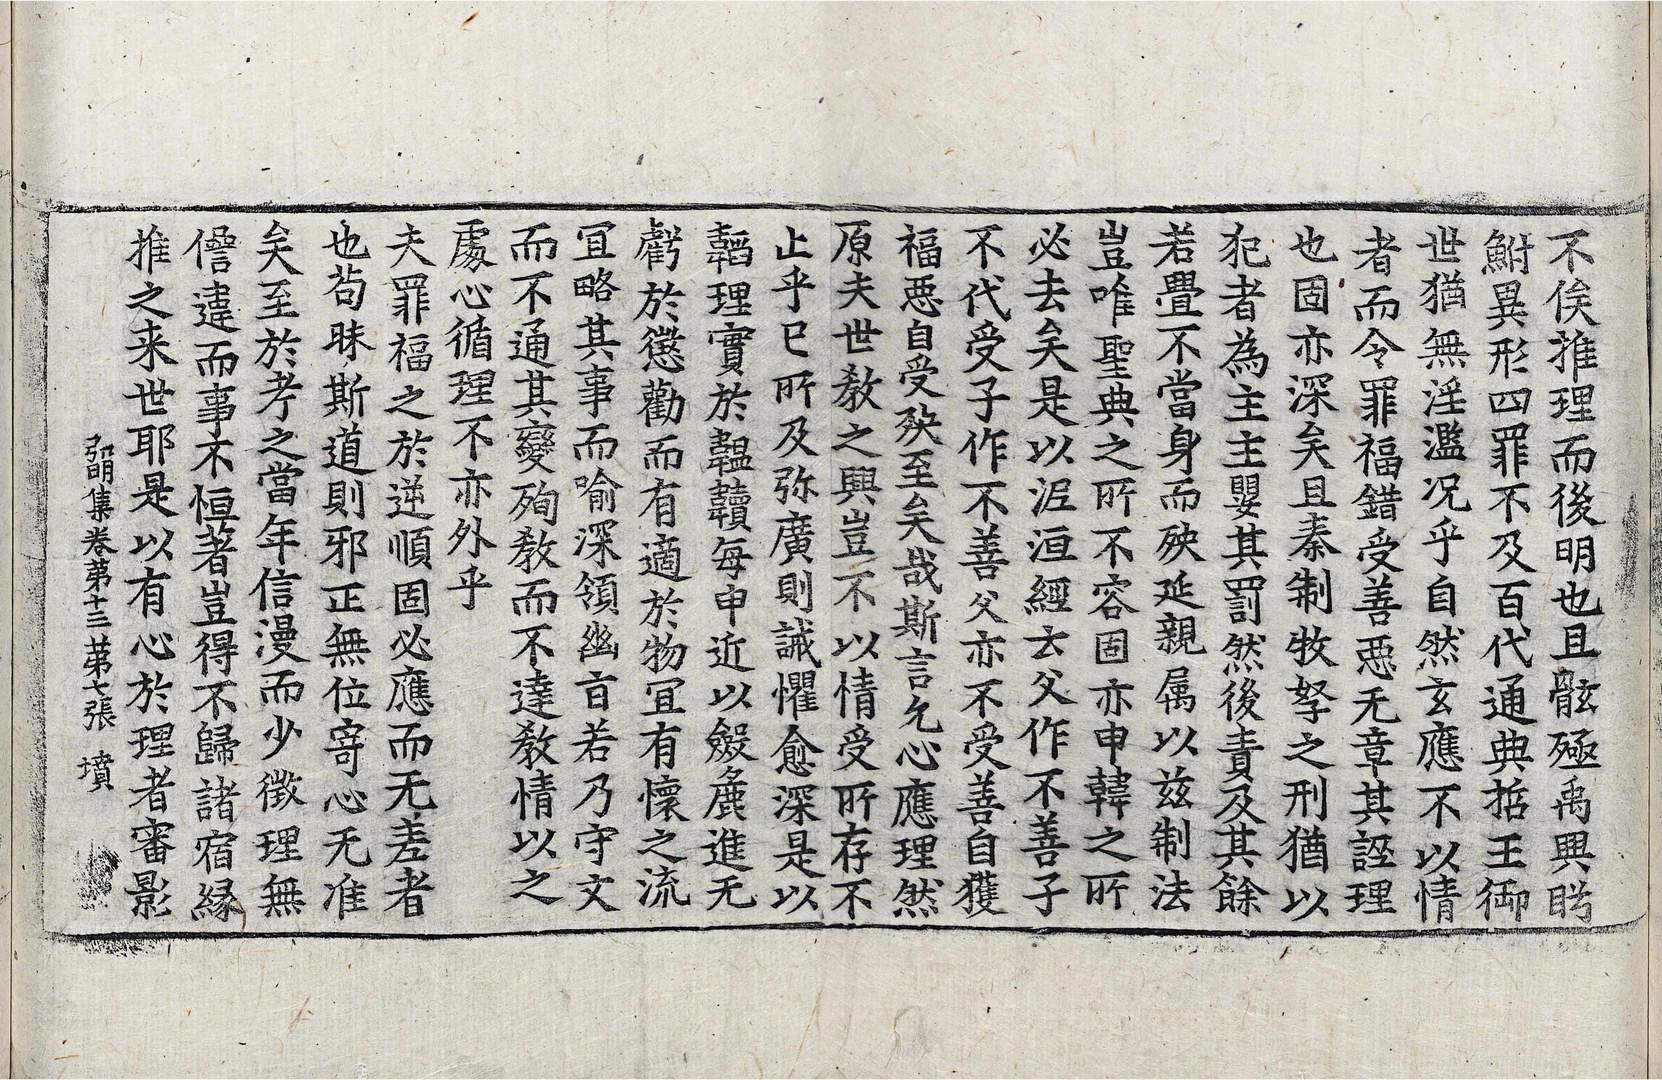 不俟推理而後明也且骸殛禹興眄
鮒異形四罪不及百代通典哲王御
世猶無淫濫况乎自然玄應不以情
者而令罪福錯受善惡无章其誣理
也固亦深矣且秦制牧孥之刑猶以
犯者為主主嬰其罰然後責及其餘
若舋不當身而殃延親属以兹制法
豈唯聖典之所不容固亦申韓之所
必去矣是以泥洹經云父作不善子
不代受子作不善父亦不受善自獲
福惡自受殃至矣哉斯言允心應理然
原夫世教之興豈不以情受所存不
止乎已所及弥廣則誡懼愈深是以
韜理實於韞韥每申近以斂麁進无
虧於懲勸而有適於物宜有懷之流
宜略其事而喻深領幽旨若乃守文
而不通其變殉教而不達教情以之
處心循理不亦外乎
夫罪福之於逆順固必應而无差者
也茍昧斯道則邪正無位寄心无准
矣至於考之當年信漫而少徵理無
僭違而事不恒著豈得不歸諸宿緣
推之来世耶是以有心於理者審影
弘明集卷苐十三 苐七張 墳